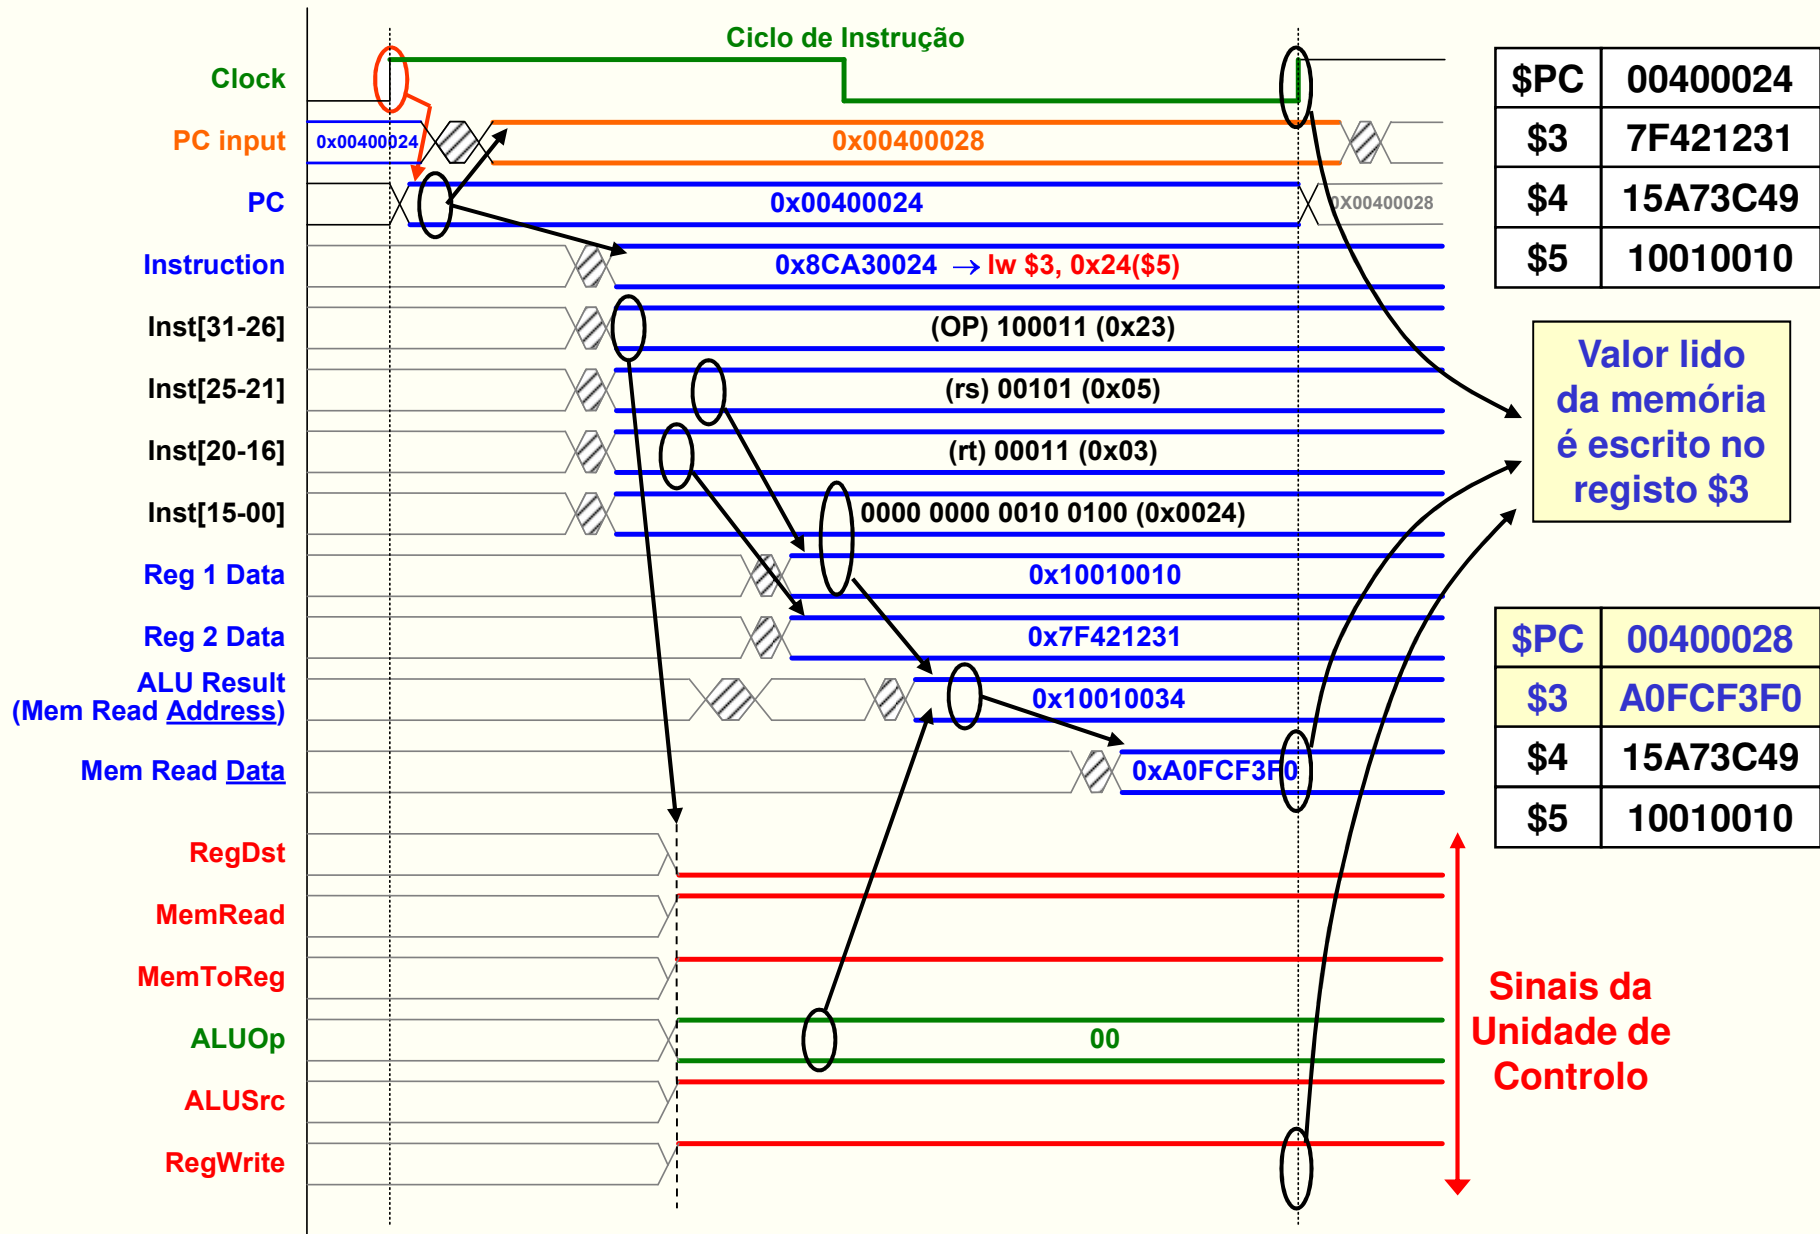 Ciclo de Instrução
Clock
PC input 0x00400024 0x00400028
PC 0x00400024 0X00400028
Instruction 0x8CA30024 → lw $3, 0x24($5)
Inst[31-26] (OP) 100011 (0x23)
Inst[25-21] (rs) 00101 (0x05)
Inst[20-16] (rt) 00011 (0x03)
Inst[15-00] 0000 0000 0010 0100 (0x0024)
Reg 1 Data 0x10010010
Reg 2 Data 0x7F421231
ALU Result
(Mem Read Address) 0x10010034
Mem Read Data 0xA0FCF3F0
RegDst
MemRead
MemToReg
ALUOp 00
ALUSrc
RegWrite
$PC 00400024
$3 7F421231
$4 15A73C49
$5 10010010
Valor lido
da memória
é escrito no
registo $3
$PC 00400028
$3 A0FCF3F0
$4 15A73C49
$5 10010010
Sinais da
Unidade de
Controlo